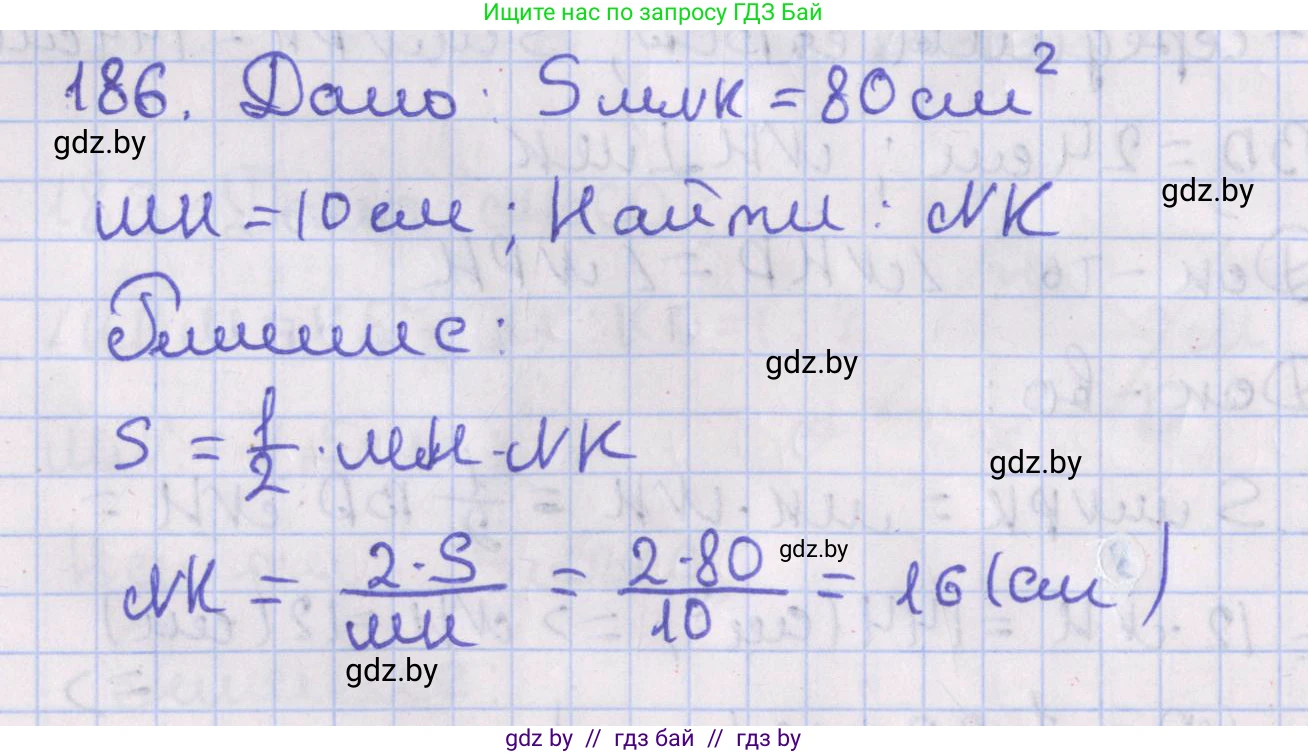 Ищите нас по запросу ГДЗ Бай
186. Дано: SмNK = 80 см²
gdz.by
gdz.by
МН = 10 см; Найти: NK
Решение:
gdz.by
S = 1/2 · МН · NK
gdz.by
NK = 2·S/МН = 2·80/10 = 16 (см)
gdz.by
gdz.by
gdz.by // гдз бай // гдз by